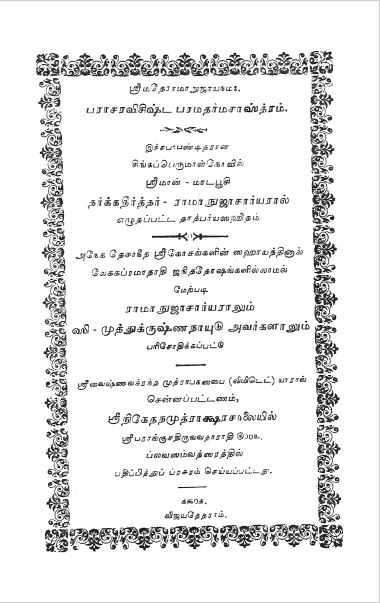 ஸ்ரீமதேராமாநுஜாயநம:.
பராசரவிசிஷ்ட பரமதர்மசாஸ்த்ரம்.
இச்சபாபண்டிதரான
சிங்கப்பெருமாள்கோவில்
ஸ்ரீமான் - மாடபூசி
தர்க்கதீர்த்தர் - ராமாநுஜாசார்யரால்
எழுதப்பட்ட தாத்பர்யஸஹிதம்
அநேக தேசாகீத ஸ்ரீகோசங்களின் ஸஹாயத்தினால்
லேககப்ரமாதாதி ஜநிததோஷங்களில்லாமல்
மேற்படி
ராமாநுஜாசார்யராலும்
முத்துக்ருஷ்ணநாயுடு அவர்களாலும்
பரிசோதிக்கப்பட்டு
ஸ்ரீவைஷ்ணவக்ரந்த முத்ராபகஸபை (லிமிடெட்) யாரால்
சென்னப்பட்டணம்,
ஸ்ரீநிகேதநமுத்ராக்ஷரசாலையில்
ஸ்ரீபராங்குசதிருவவதாராதி
ப்லவஸம்வத்ஸரத்தில்
பதிப்பித்துப் ப்ரசுரம் செய்யப்பட்டது.
விஜயதேதராம்.